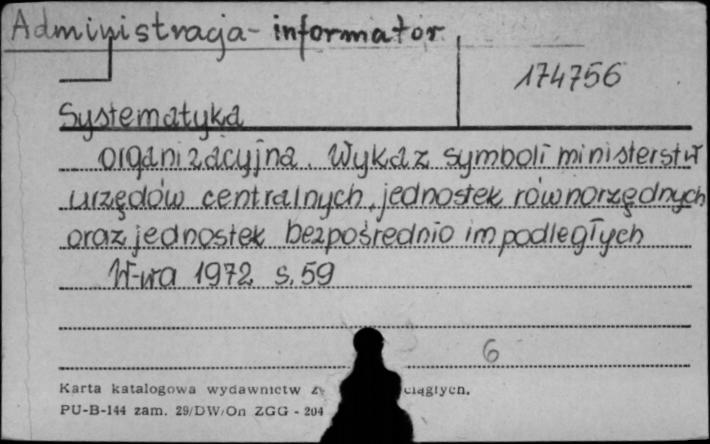 Administracja - informator
174756
Systematyka
organizacyjna. Wykaz symboli ministerstw
urzędów centralnych, jednostek równorzędnych
oraz jednostek bezpośrednio im podległych
W-wa 1972 s. 59
6
Karta katalogowa wydawnictw z ciągłych.
PU-B-144 zam. 29/DW/On ZGG - 204